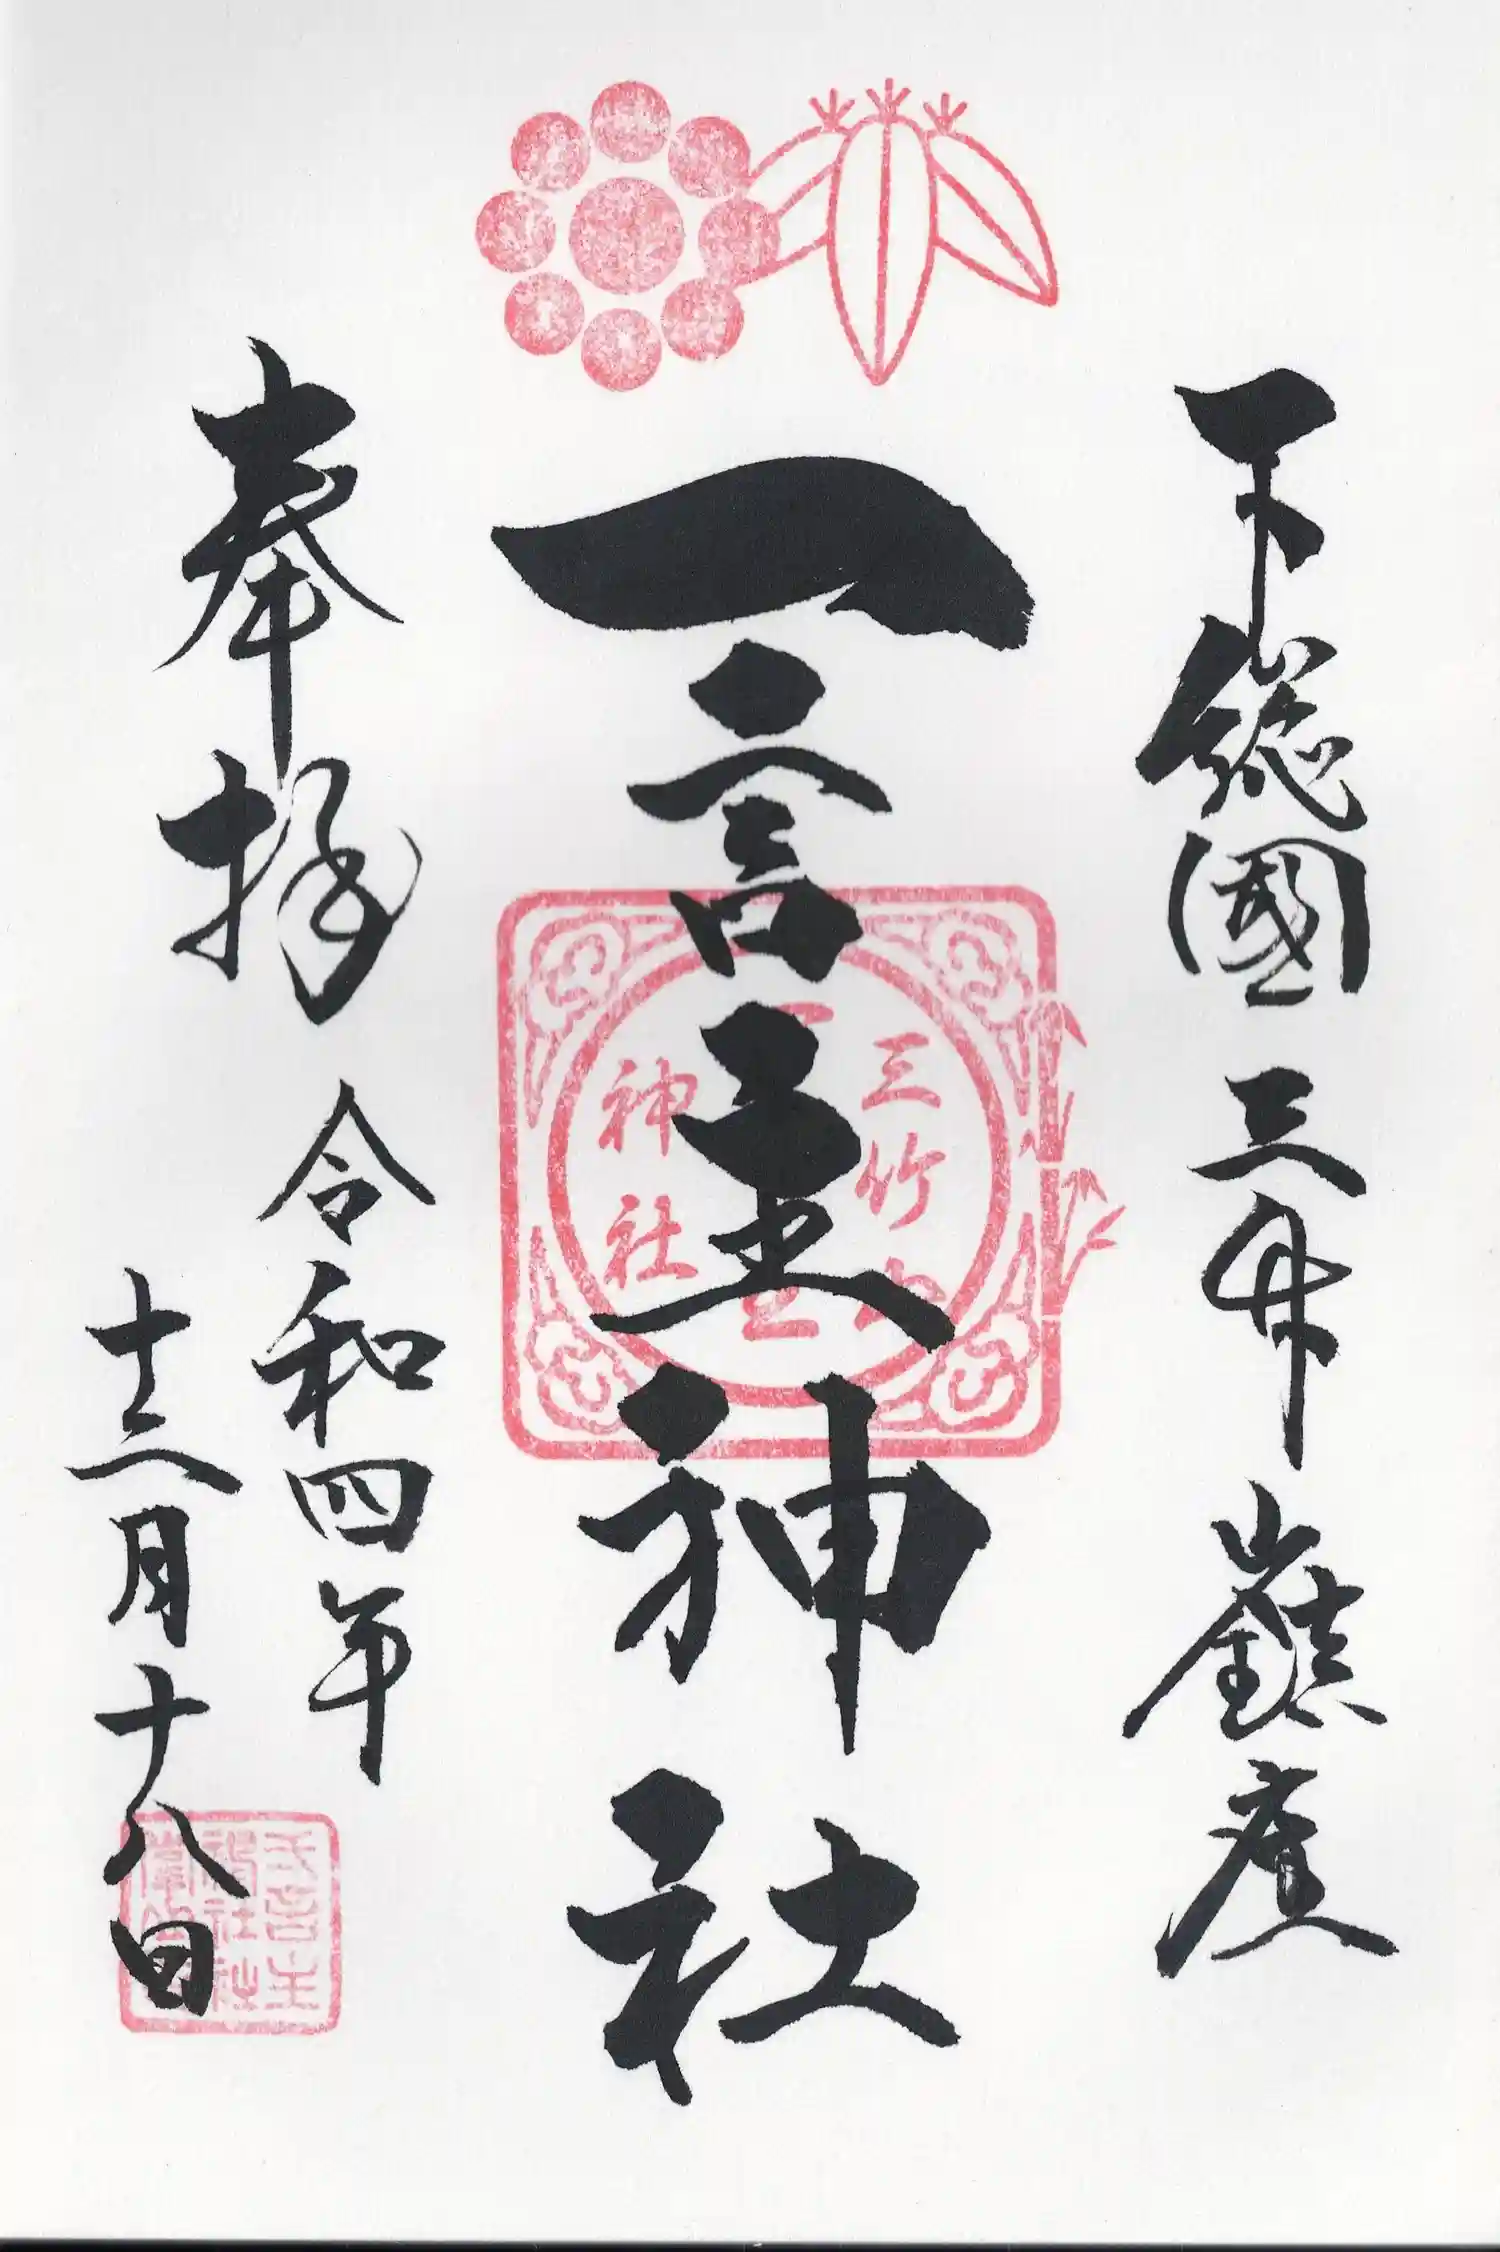 下総國 三竹山鎮座
一言主神社
三竹山
一言主
神社
奉拝
令和四年
十二月十八日